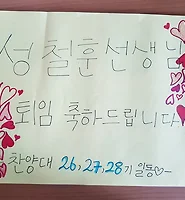 성철훈선생님
퇴임 축하드립니다
찬양대 26,27,28기 일동♡-